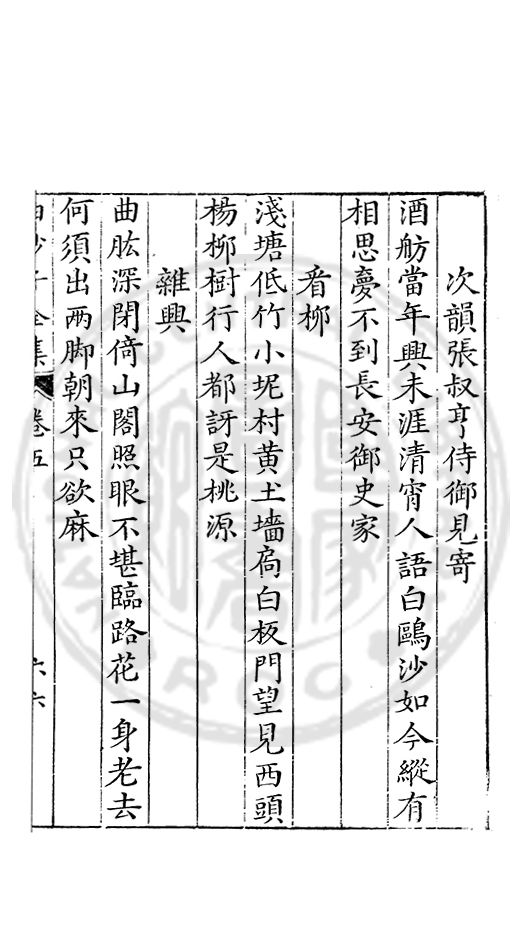 次韻張叔亨侍御見寄
酒舫當年興未涯清宵人語白鷗沙如今縱有
相思夢不到長安御史家
看柳
淺塘低竹小坭村黄土墻扄白板門望見西頭
楊柳樹行人都訝是桃源
雜興
曲肱深閉倚山閣照眼不堪臨路花一身老去
何須出两脚朝來只欲麻
白沙子全集 卷五 六六